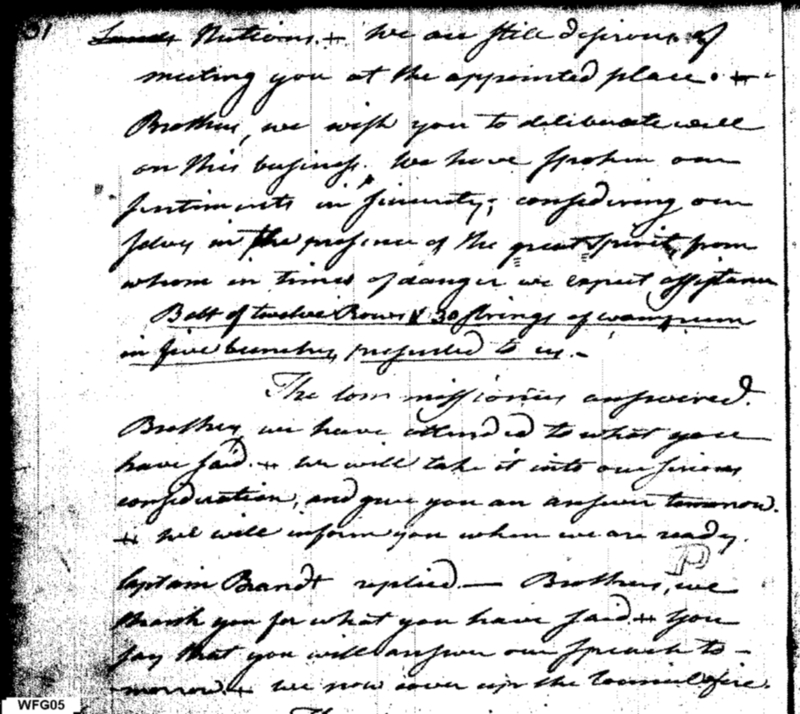 31
Lands Nations. + We are still desirous of
meeting you at the appointed place. +
Brothers, we wish you to deliberate well
on this business. We have spoken our
sentiments in sincerity; considering our
selves in the presence of the great Spirit, from
whom in times of danger we expect assistance
Belt of twelve Rows & 30 strings of wampum
in five bunches, presented to us. -
The Commissioners answered.
Brothers, we have attended to what you
have said. + We will take it into our serious
consideration, and give you an answer tomorrow.
+ We will inform you when we are ready.
Captain Brandt replied. — Brothers, we
thank you for what you have said + You
say that you will answer our speech to-
morrow + We now cover up the Council fire.
WFG05